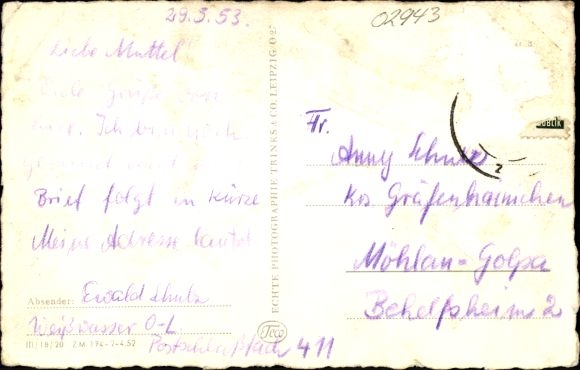 29.5.53.
02943
Liebe Muttel
Viele Grüße
hier. Ich bin noch
gesund und
Brief folgt in Kürze
Meine Adresse lautet
Absender: Ewald Schulz
Weißwasser O-L
Postschließfach 411
III/18/20 Z.M. 194-7-4.52
ECHTE PHOTOGRAPHIE TRINKS & CO. LEIPZIG O 27
Teco
Fr.
Anny Schulz
Krs. Gräfenhainichen
Möhlau-Golpa
Behelfsheim 2